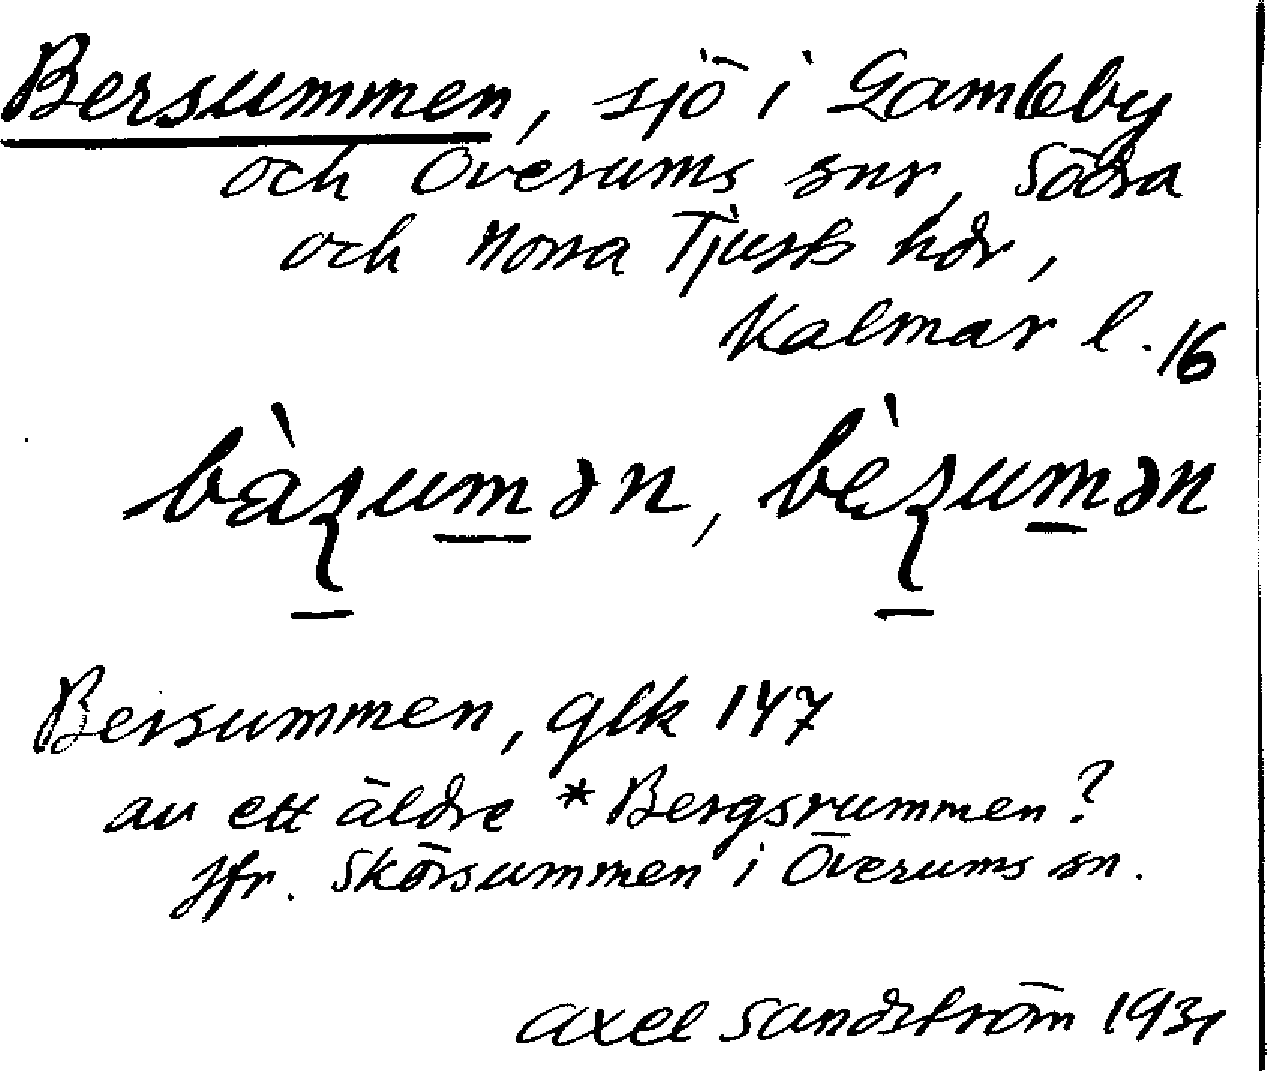 Bersummen, sjö i Gamleby
och Överums snr, Södra
och Norra Tjusts hdr,
Kalmar l. 16
bàʂumən, bèʂumən
Bersummen, glk 147
av ett äldre *Bergsrummen?
Jfr. Skörsummen i Överums sn.
Axel Sandström 1931